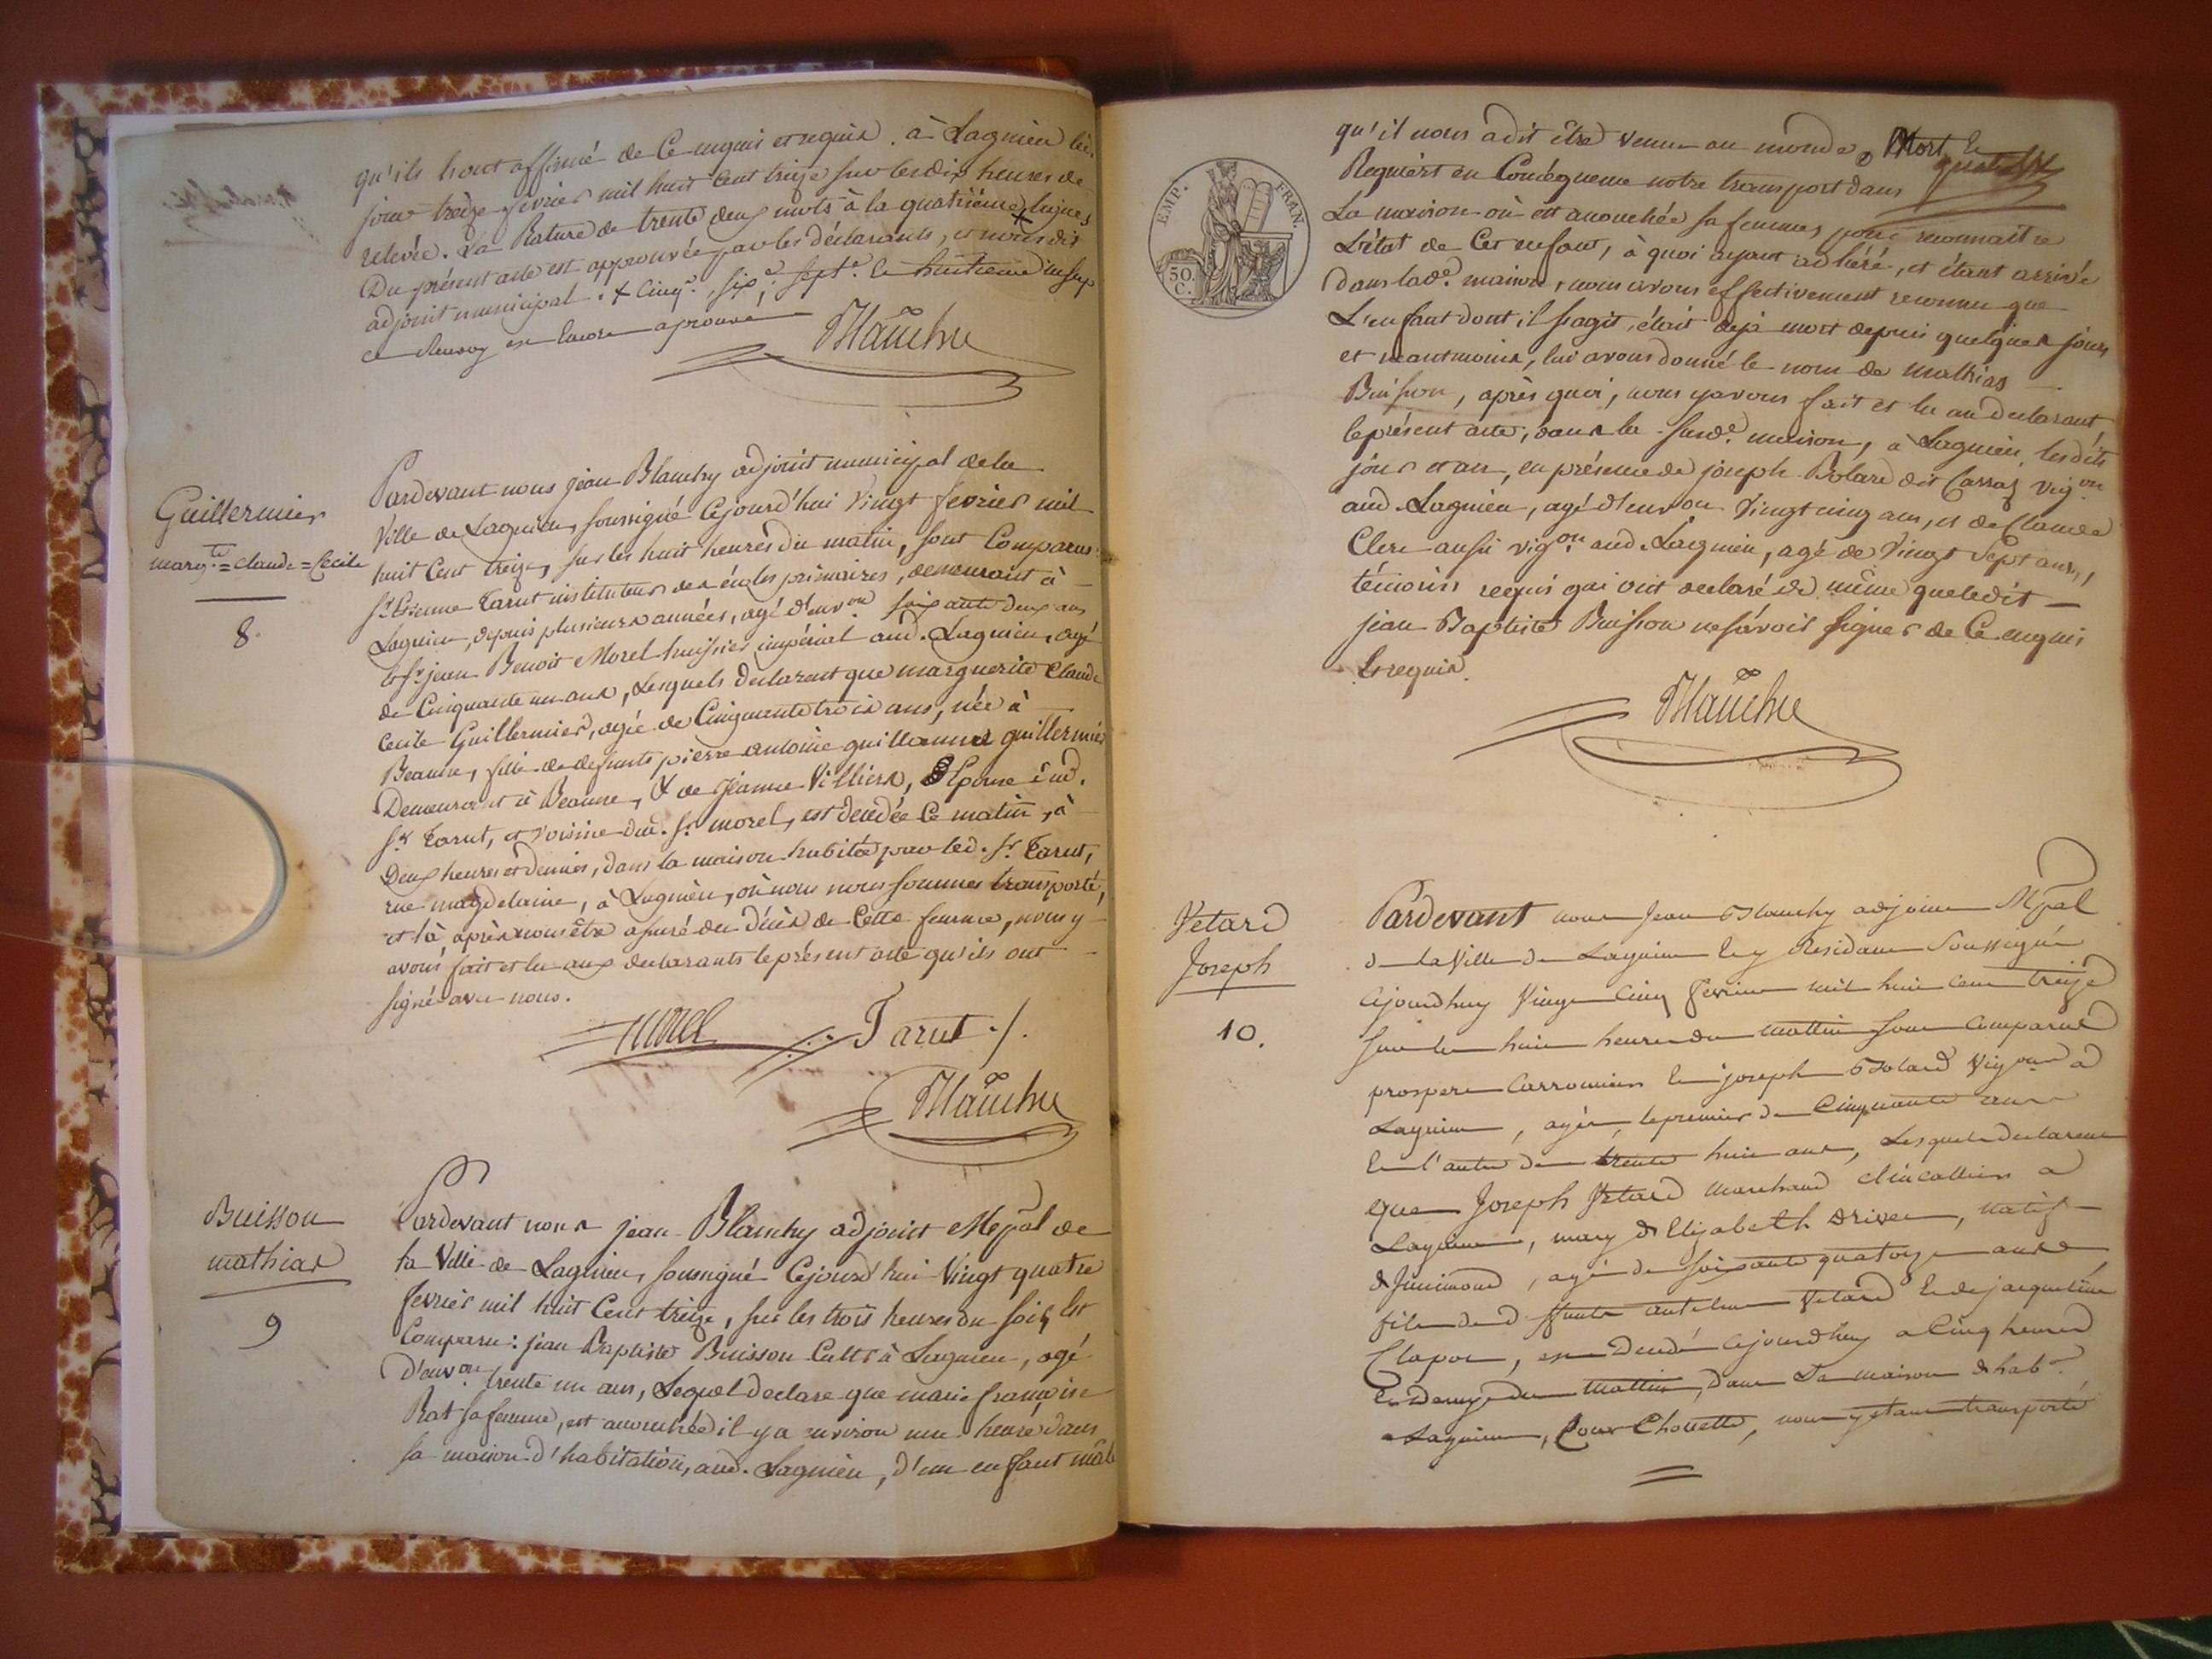 qu'ils n'ont affirmé de ce enquis et requis. à Lagnieu les
jour treize fevrier mil huit Cent treize sur les dix heures de
relevée. La Rature de trente deux mots à la quatrième + lignes
Du présent acte est approuvée par les déclarants, et nous dit
adjoint municipal. + Cinqe. sixe. septe. le huitieme
ce Renvoy est encore aprouvé
Blanchy
Guillermier
margte = claude = Cecile
8.
Pardevant nous jean Blanchy adjoint municipal de la
Ville de Lagnieu, soussigné Cejourd'hui Vingt fevrier mil
huit Cent treize, sur les huit heures du matin, sont Comparus:
Sr. Etienne Tarut instituteur des écoles primaires, demeurant à
Lagnieu, depuis plusieurs années, agé d'environ soixante deux ans
le Sr. jean Benoit Morel huissier impérial aud. Lagnieu, agé
de Cinquante un ans, Lesquels declarent que marguerite Claude
Cecile Guillermier, agée de Cinquante trois ans, née à
Beaune, fille de defunts pierre antoine guillaume guillermier
Demeurant à Beaune, & de Jeanne Villiers, Epouse dud.
Sr Tarut, et voisine dud. Sr. morel, est décédée Ce matin, à
Deux heures et demies, dans la maison habitée par led. Sr. Tarut,
rue magdelaine, à Lagnieu, où nous nous sommes transporté,
et là après nous être assuré du décès de Cette femme, nous y
avons fait et lu aux declarants le présent acte qu'ils ont
signé avec nous.
Morel Tarut
Blanchy
Buisson
mathias
9
Pardevant nous jean Blanchy adjoint Mpal de
la Ville de Lagnieu, soussigné Cejourd'hui Vingt quatre
fevrier mil huit Cent treize, sur les trois heures du soir, Est
Comparu: jean Baptiste Buisson Cultr à Lagnieu, agé
d'envon trente un ans, Lequel declare que marie françoise
Rat sa femme, est accouchée il y a environ une heure dans
sa maison d'habitation, aud. Lagnieu, d'un enfant mâle
EMP. FRAN.
50 C.
qu'il nous a dit être venu au monde, Mort le
Requiert en Conséquence notre transport dans
La maison où est accouchée sa femme, pour reconnaitre
L'état de Cet enfant, à quoi ayant adhéré, et étant arrivé
dans lade. maison, nous avons effectivement reconnu que
L'enfant dont il s'agit, était deja mort depuis quelques jours
et neantmoins, lui avons donné le nom de mathias
Buisson, après quoi, nous y avons fait et lu au declarant
le présent acte, dans la susde. maison, à Lagnieu, lesdits
jour et an, en présence de joseph Bolard dit Carraz vigon
aud. Lagnieu, agé d'environ Vingt cinq ans, et de Claude
Clerc aussi vigon aud. Lagnieu, agé de Vingt Sept ans,
témoins requis qui ont declaré de même que ledit
jean Baptiste Buisson ne savoir signer de Ce enquis
Et requis.
Blanchy
Vetard
Joseph
10.
Pardevant nous Jean Blanchy adjoint Mpal
de la Ville de Lagnieu Et y Residant Soussigné
cejourdhuy Vingt Cinq fevrier mil huit cent treize
sur les huit heures du mattin sont comparus
prospere Carronnier Et joseph Bolard Vigons à
Lagnieu, agés, le premier de Cinquante ans
Et l'autre de trente huit ans, Lesquels declarent
que Joseph Vetard Marchand clincallier à
Lagnieu, mary d'Elizabeth Drivet, natif
de Jimimond, agé de soixante quatorze ans
fils de deffunts antelme Vetard Et de jacqueline
Clapot, est Decedé cejourdhuy a Cinq heures
Et Demye du mattin, dans Sa maison d'habon.
a Lagnieu, Cour Chouette, nous y etant transporté